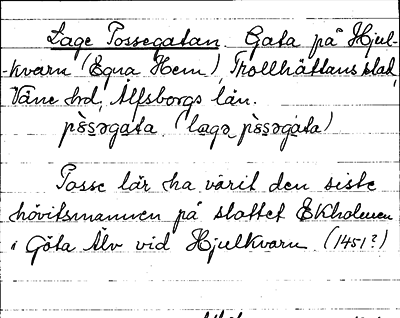 Lage Possegatan. Gata på Hjul-
-kvarn (Egna Hem), Trollhättans stad,
Väne hd, Älfsborgs län.
pòs̀s̀əgata. (lagə pòs̀s̀əgata)
Posse lär ha varit den siste
hövitsmannen på slottet Ekholmen
i Göta Älv vid Hjulkvarn. (1451?)